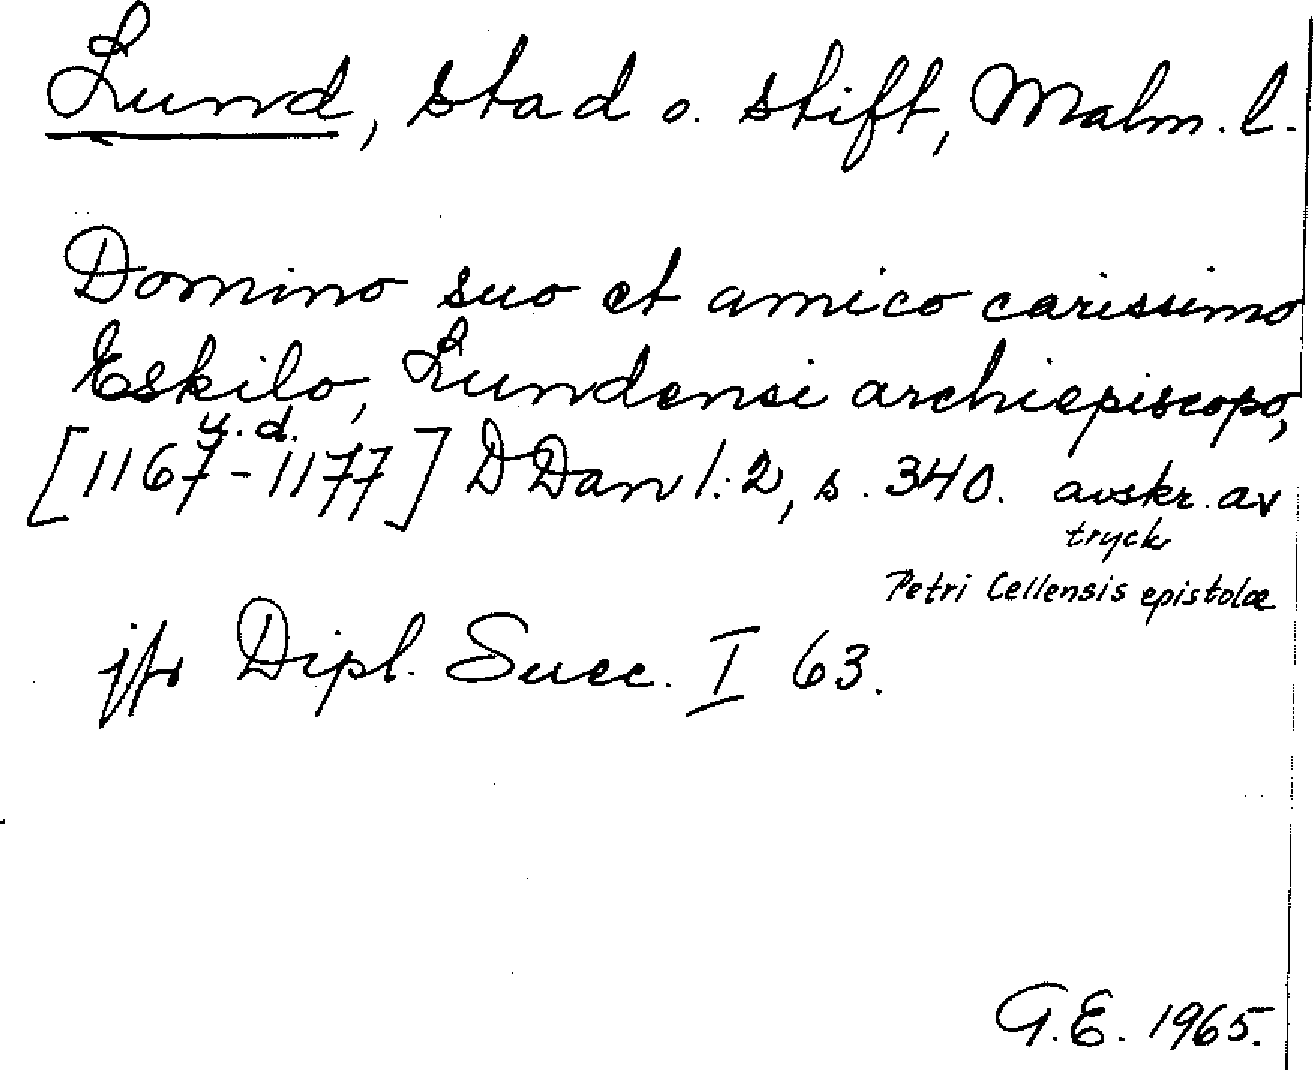 Lund, stad o. stift, Malm. l.
Domino suo et amico carissimo
Eskilo, Lundensi archiepiscopo,
u. d.
[1167-1177] DDan 1:2, s. 340. avskr. av
tryck
Petri Cellensis epistolæ
jfr Dipl. Suec. I 63.
G.E. 1965.